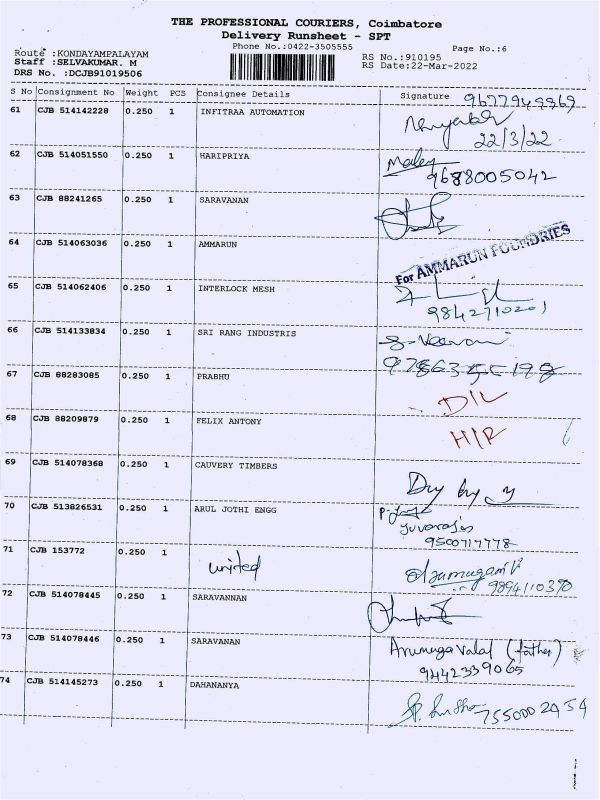 THE PROFESSIONAL COURIERS, Coimbatore
Delivery Runsheet - SPT
Phone No.:0422-3505555 Page No.:6
Route :KONDAYAMPALAYAM
Staff :SELVAKUMAR. M RS No.:910195
DRS No. :DCJB91019506 RS Date:22-Mar-2022
S No Consignment No Weight PCS Consignee Details Signature
61 CJB 514142228 0.250 1 INFITRAA AUTOMATION
22/3/22
62 CJB 514051550 0.250 1 HARIPRIYA
9688005042
63 CJB 88241265 0.250 1 SARAVANAN
64 CJB 514063036 0.250 1 AMMARUN For AMMARUN FOUNDRIES
65 CJB 514062406 0.250 1 INTERLOCK MESH
9842710201
66 CJB 514133834 0.250 1 SRI RANG INDUSTRIS
67 CJB 88283085 0.250 1 PRABHU D/L
68 CJB 88209879 0.250 1 FELIX ANTONY H/R
69 CJB 514078368 0.250 1 CAUVERY TIMBERS
70 CJB 513826531 0.250 1 ARUL JOTHI ENGG
9500717778
71 CJB 153772 0.250 1 united
9894110390
72 CJB 514078445 0.250 1 SARAVANNAN
73 CJB 514078446 0.250 1 SARAVANAN (father)
9442339065
74 CJB 514145273 0.250 1 DAHANANYA